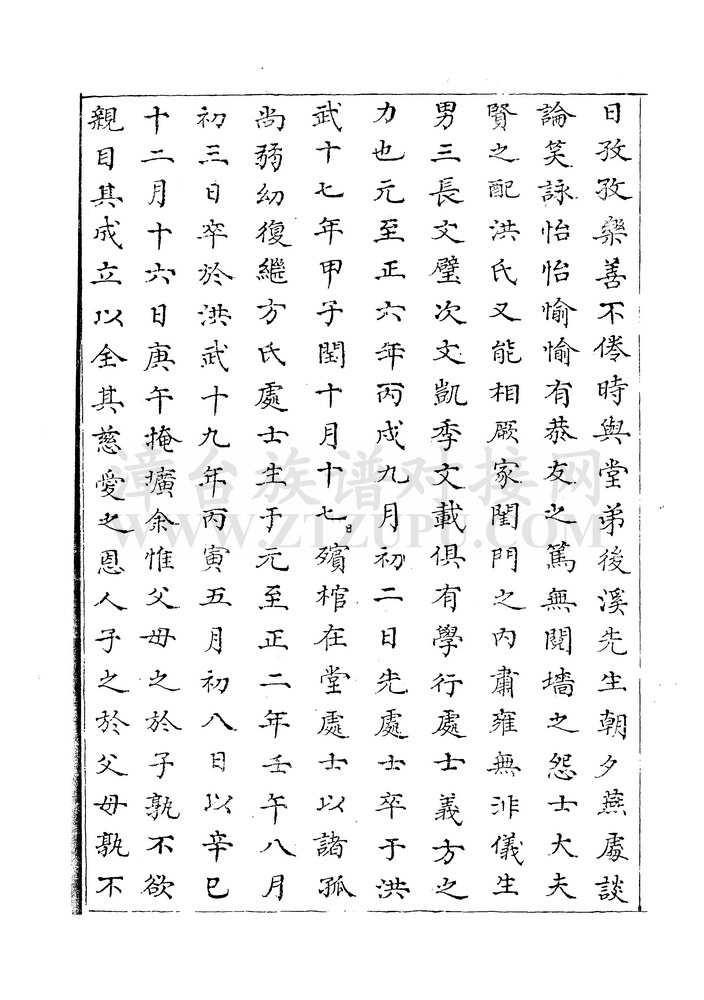 日孜孜樂善不倦時與堂弟後溪先生朝夕燕處談
論笑詠怡怡愉愉有恭友之篤無鬩墻之怨士大夫
賢之配洪氏又能相厥家閨門之內肅雍無非儀生
男三長文璧次文凱季文載俱有學行處士義方之
力也元至正六年丙戌九月初二日先處士卒于洪
武十七年甲子閏十月十七日殯棺在堂處士以諸孤
尚弱幼復繼方氏處士生于元至正二年壬午八月
初三日卒於洪武十九年丙寅五月初八日以辛巳
十二月十六日庚午掩壙余惟父母之於子孰不欲
親目其成立以全其慈愛之恩人子之於父母孰不
漳台族谱对接网
WWW.ZTZUPU.COM